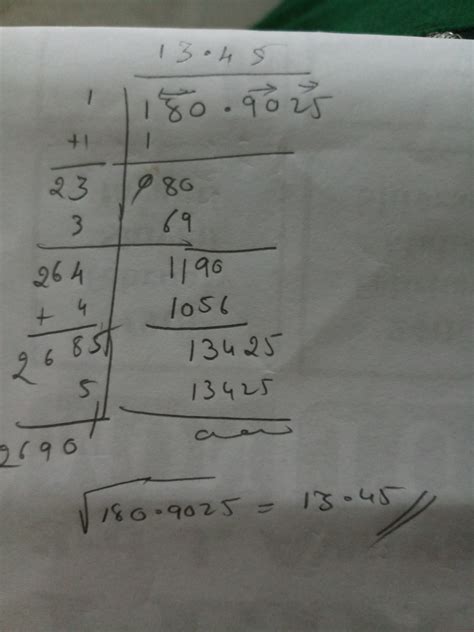 13.45
1 180.9025
+1 1
23 080
3 69
264 1190
+ 4 1056
2685 13425
5 13425
2690
√180.9025 = 13.45